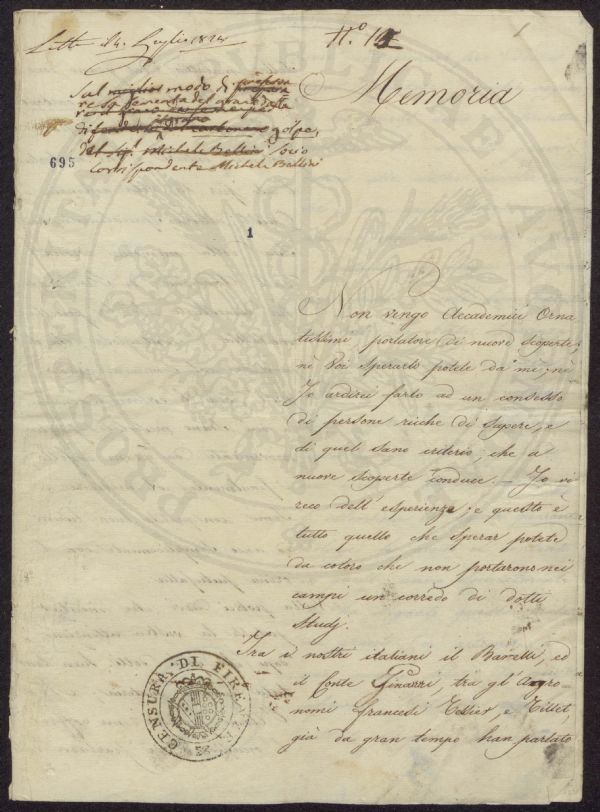 Letta il 4. Luglio 1824
N.º 14
1
Memoria
Sul miglior modo di
del grano
di golpe,
Del Sig.r Michele Bellini socio
Corrispondente Michele Bellini
695
1
Non vengo Accademici Orna
tissimi portatore di nuove scoperte,
nè Voi sperarlo potete da me; nè
Io ardirei farlo ad un consesso
di persone ricche di sapere, e
di quel sano criterio, che a
nuove scoperte conduce. — Io vi
reco dell'esperienze; e questo è
tutto quello che sperar potete
da coloro che non portarono nei
campi un corredo di dotti
Studj.
Tra i nostri italiani il Barelli, ed
il Conte Ginanni, tra gl'Agro-
nomi francesi Tessier, e Tillet,
già da gran tempo han parlato
CENSURA DI FIRENZE